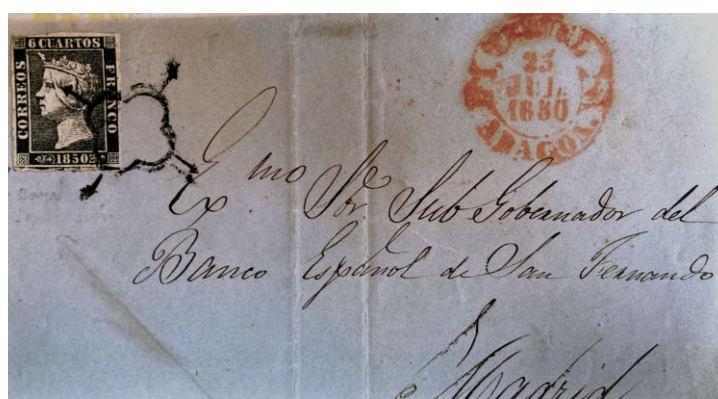 6 CUARTOS
CORREOS
FRANCO
1850
TERUEL
25
JUL
1850
ARAGON.
Exmo Sor. Sub Gobernador del
Banco Español de San Fernando
Madrid